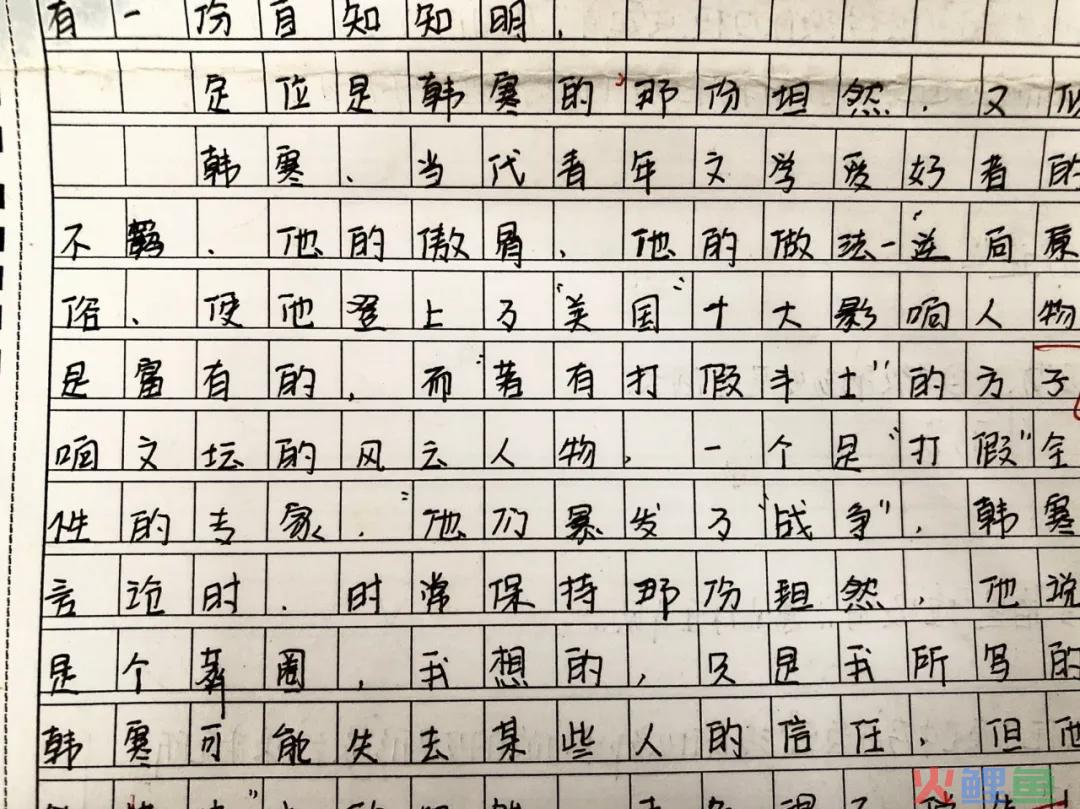 有一份自知知明,
定位是韩寒的那份坦然.又似
韩寒、当代青年文学爱好者的
不羁.他的傲骨、他的做法一逆向
俗、使他登上了"美国"十大影响人物
是富有的,而"著有打假斗士"的方子
响文坛的风云人物,一个是"打假"全
性的专家."他们暴发了"战争",韩寒
言论时.时常保持那份坦然,他说
是个圈,我想的,只是我所写的
韩寒可能失去某些人的信任.但他
火鲤鱼